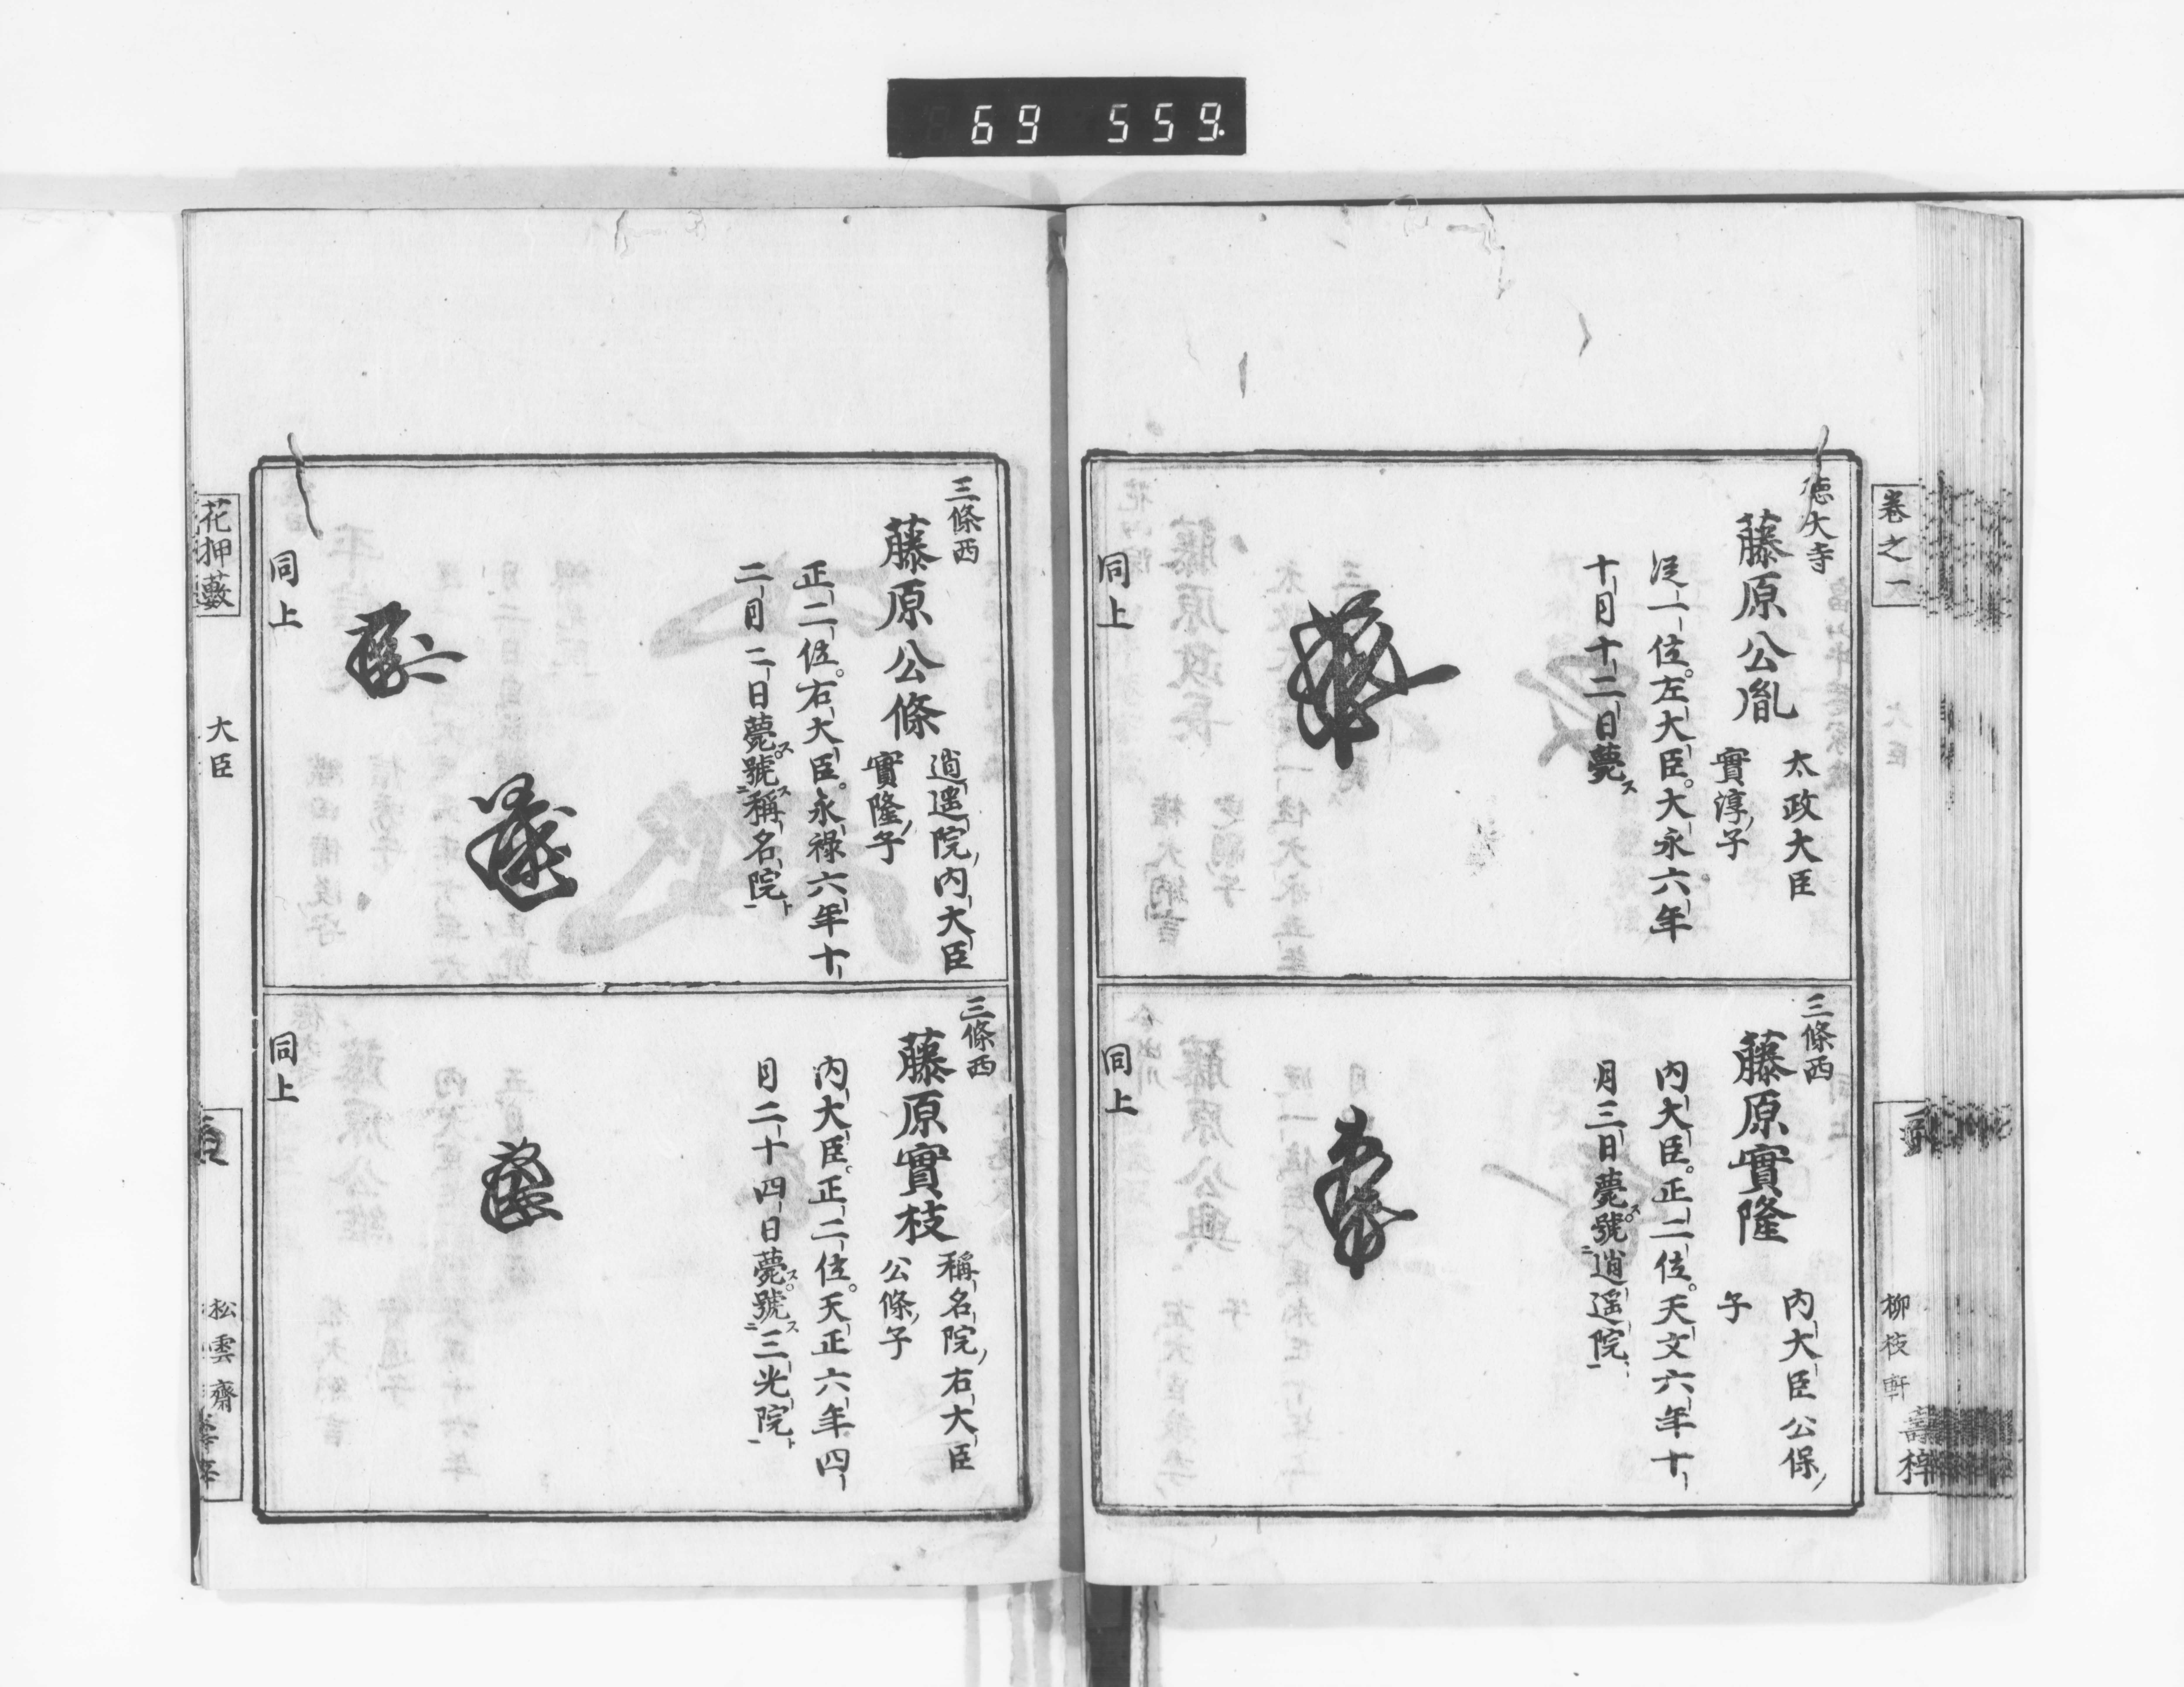 69 559.
卷之一
柳枝軒
壽梓
德大寺
藤原公胤
太政大臣
實淳子
從一位。左大臣。大永六年
十月十二日薨ス
同上
三條西
藤原實隆
內大臣公保
子
內大臣。正二位。天文六年十
月三日薨ス。號ニ逍遥院一
同上
三條西
藤原公條
逍遥院內大臣
實隆子
正二位。右大臣。永祿六年十
二月二日薨ス。號ニス稱名院ト一
同上
三條西
藤原實枝
稱名院右大臣
公條子
內大臣。正二位。天正六年四
月二十四日薨ス。號ニス三光院ト一
同上
花押藪
大臣
松雲齋